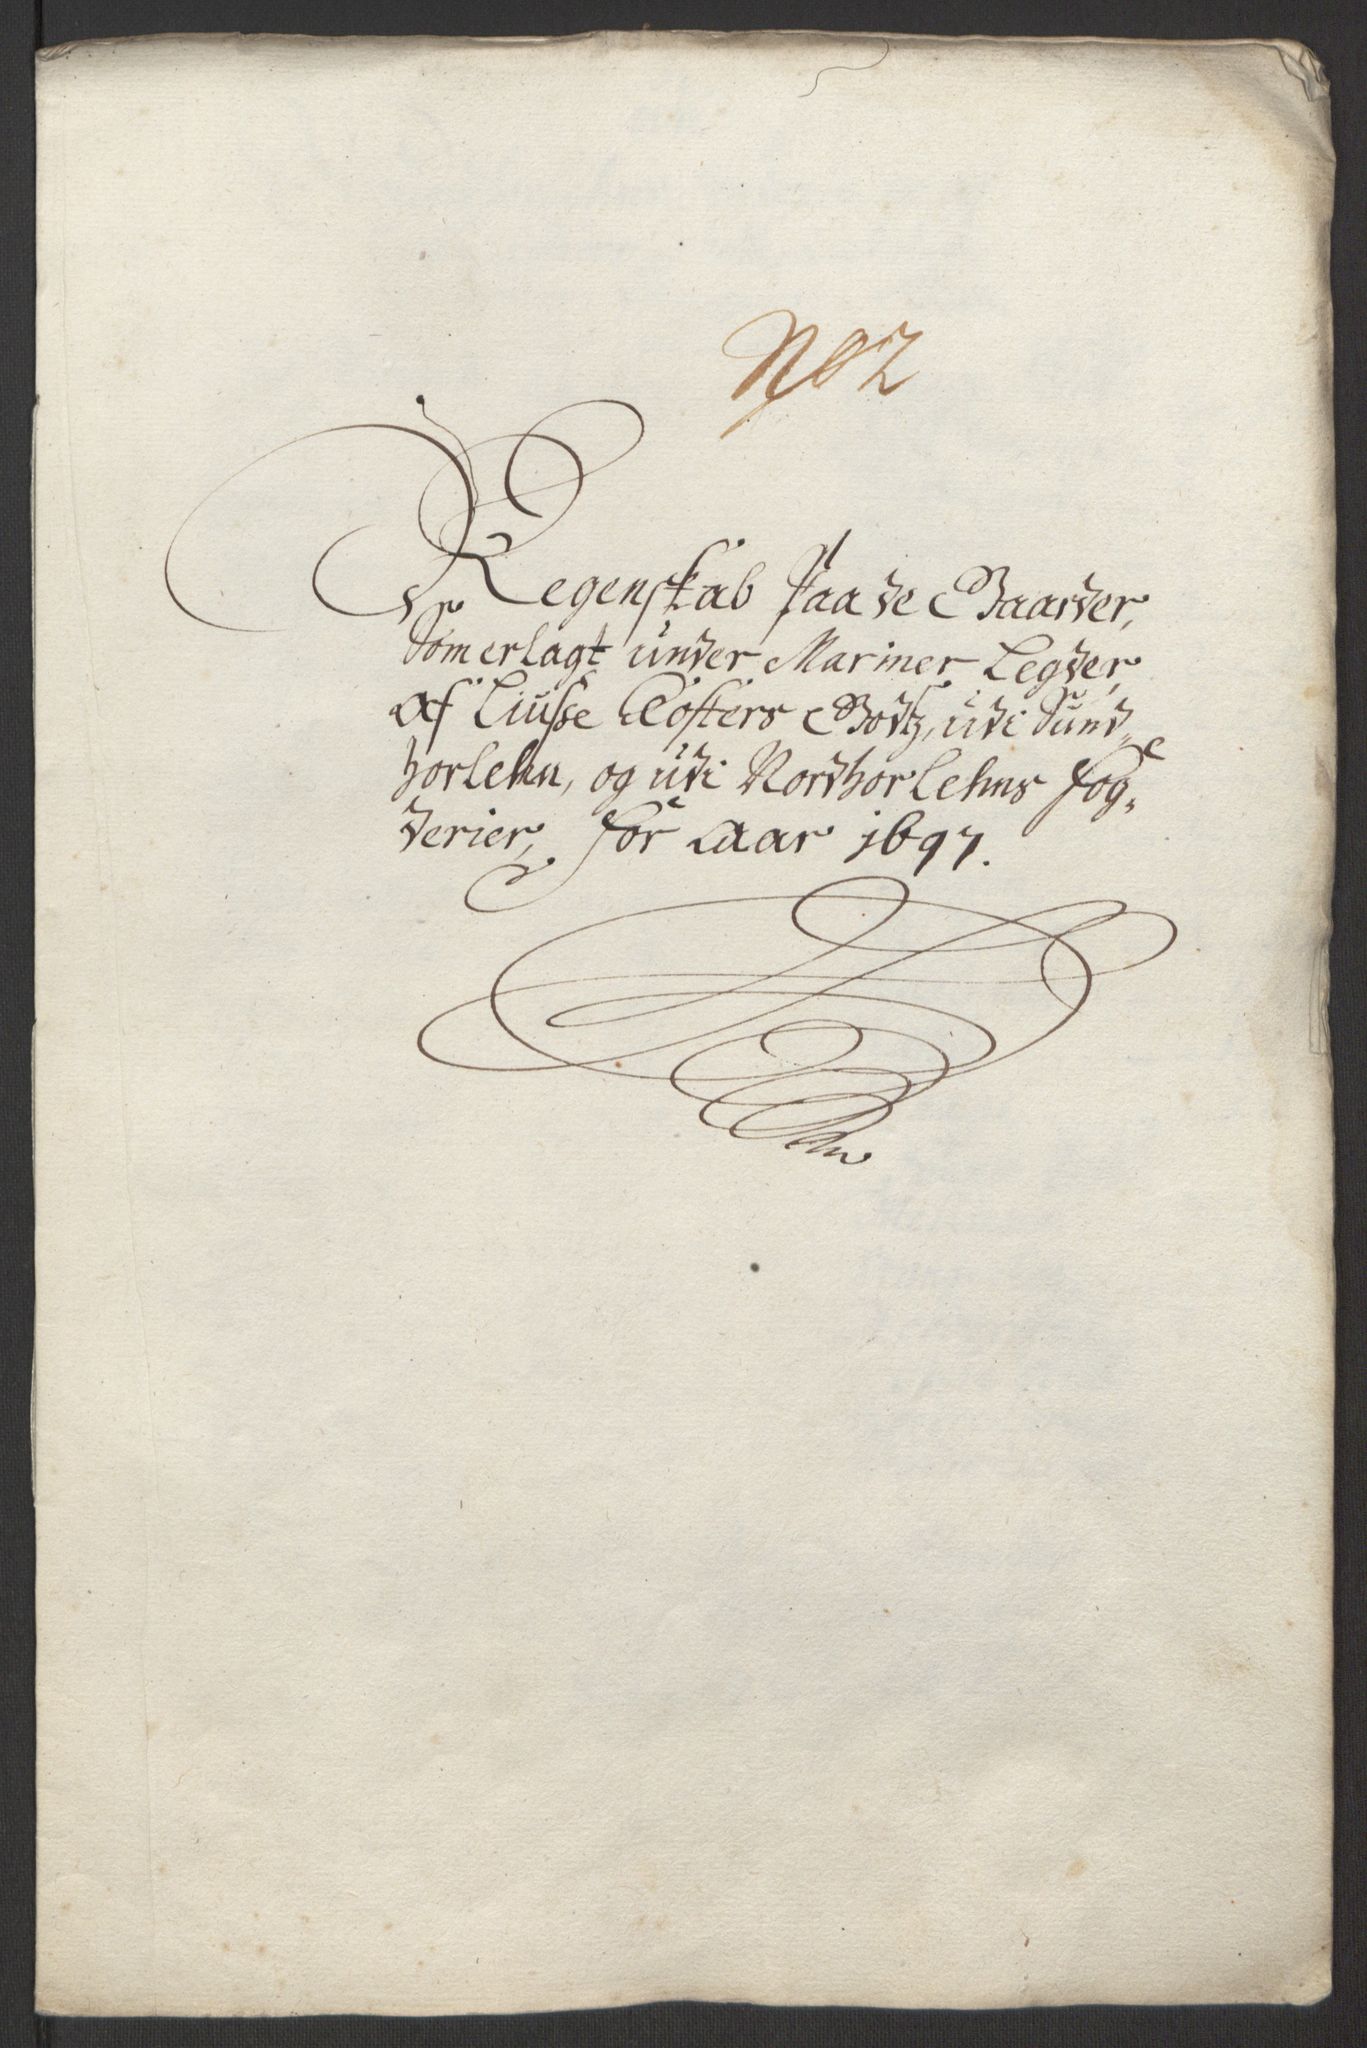 No 2
Regenskab Paa de Gaarder,
Som erlagt under Mariner Legder,
af Liusse Closters Godtz, udi Sund-
horlehn, og udi Nordhorlehns Fog-
derier, for Aar 1697.